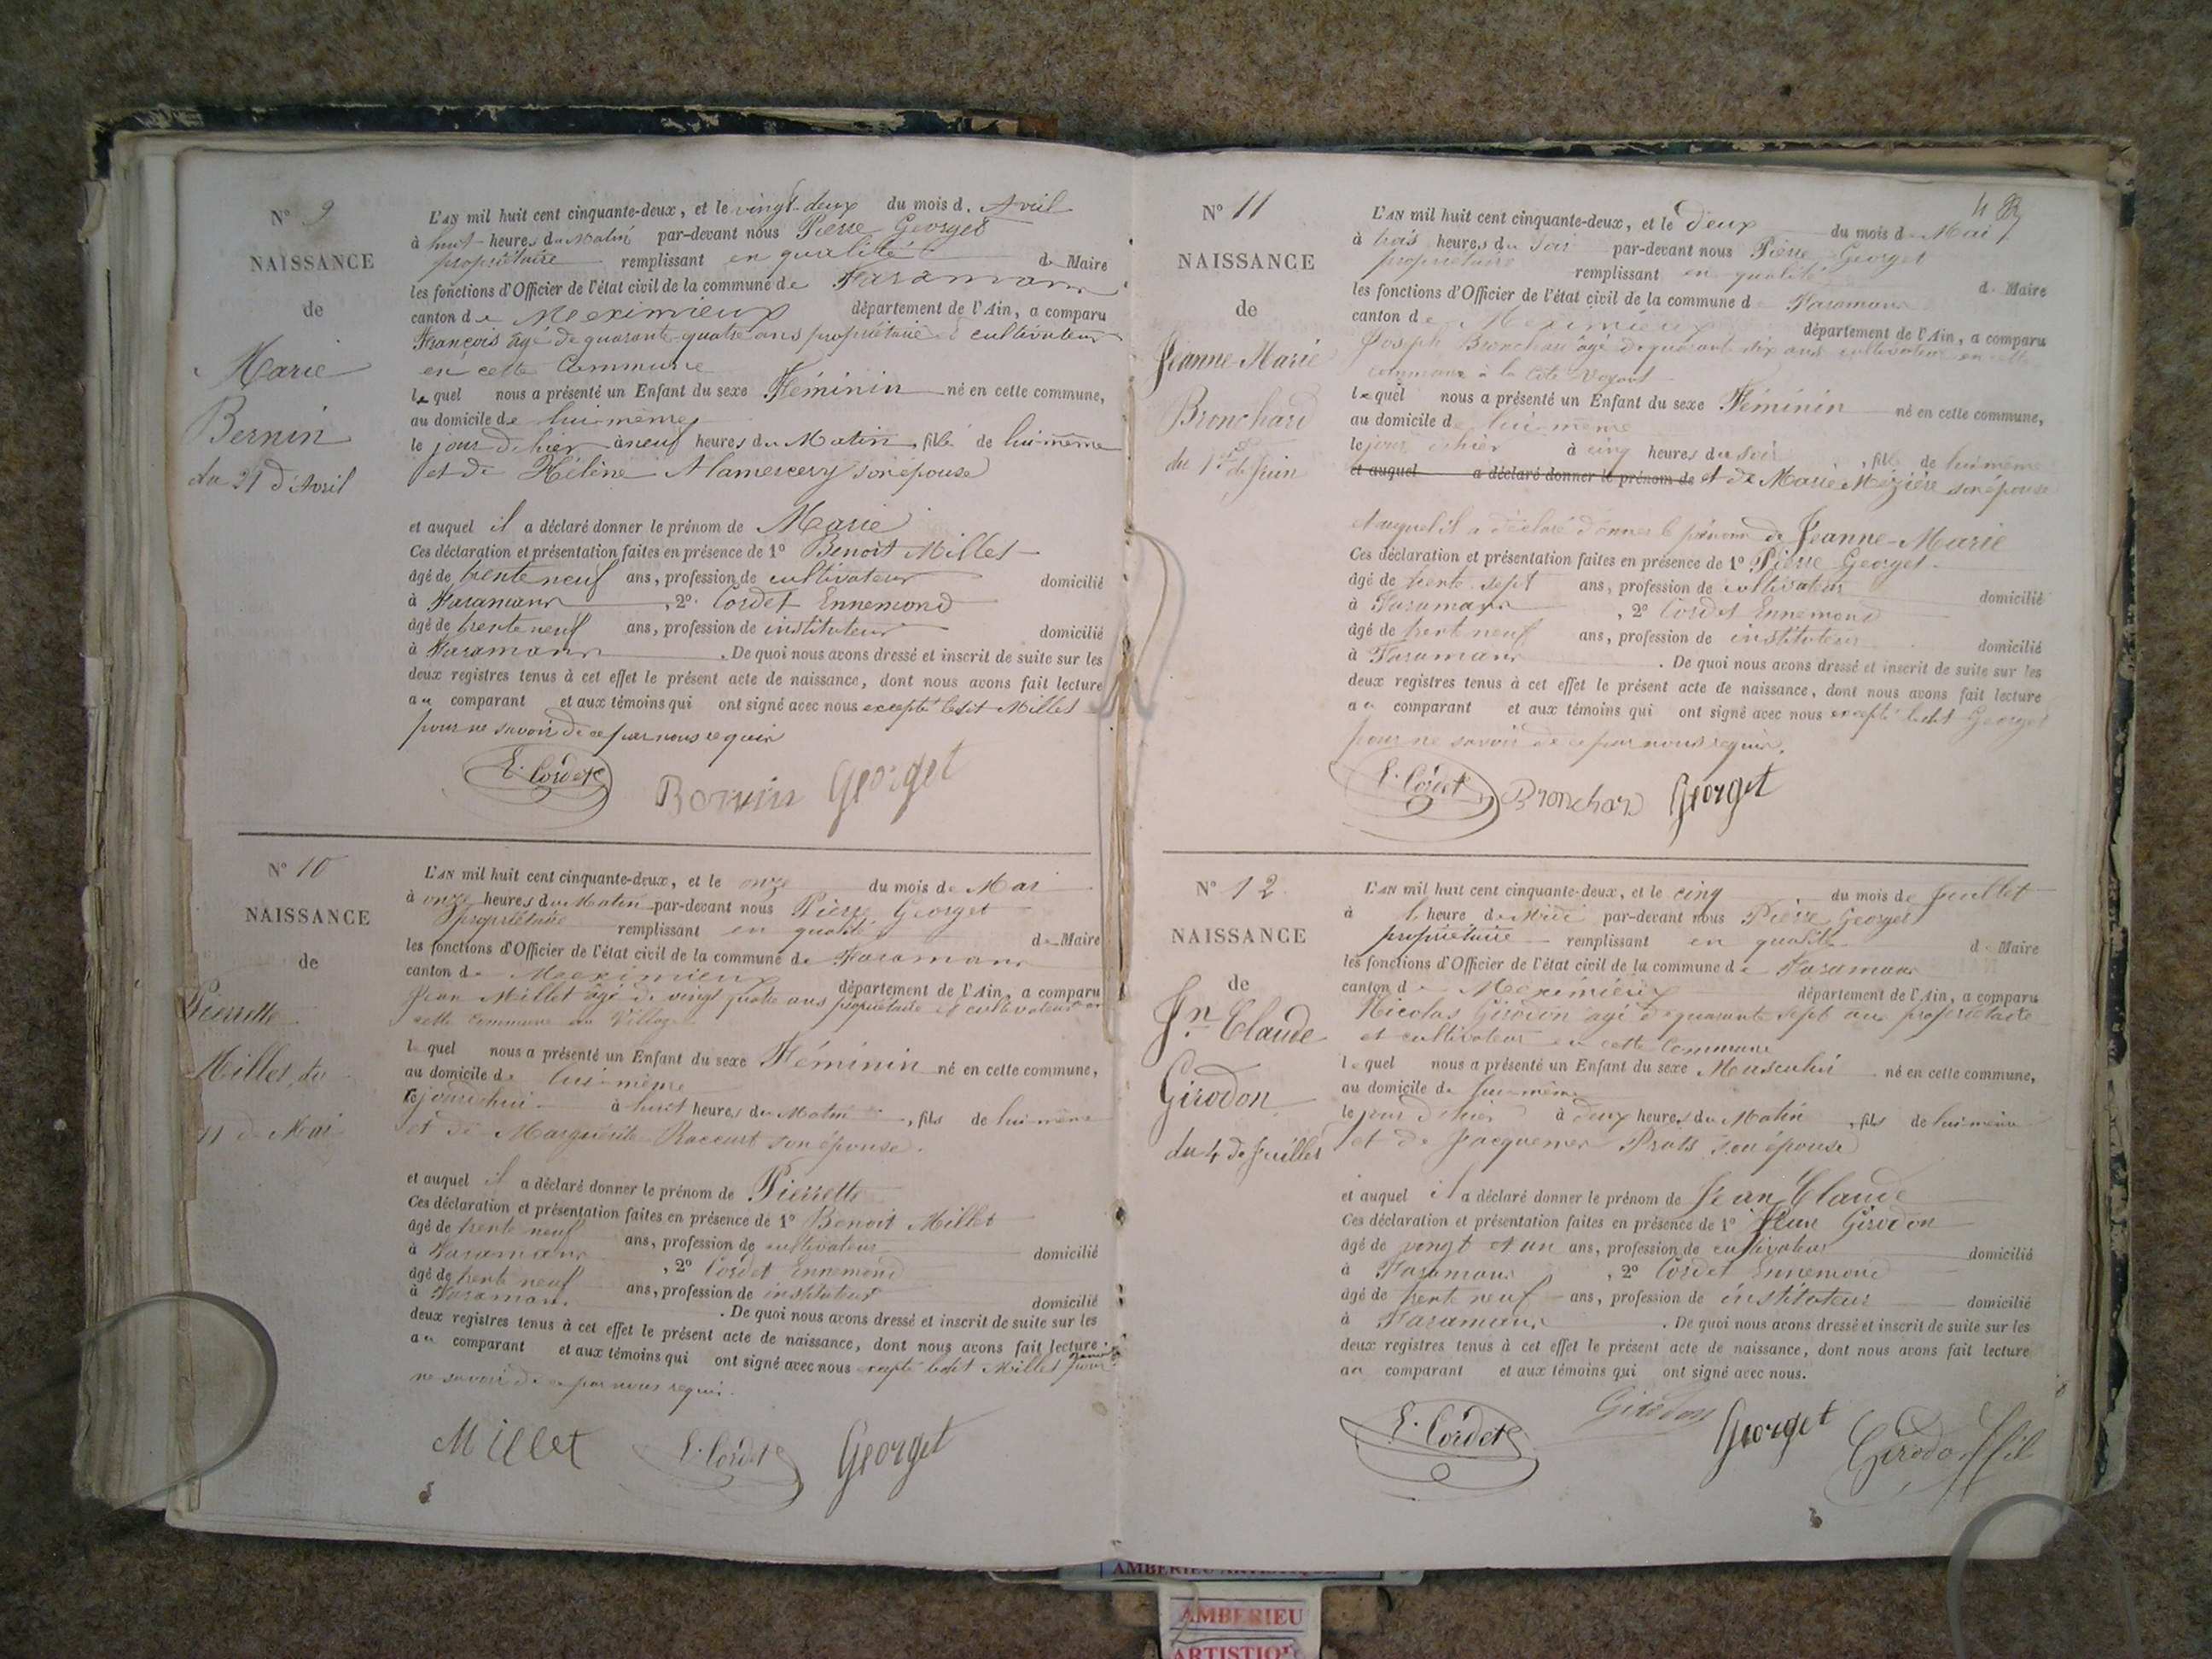 N° 9
NAISSANCE
de
Marie
Bernin
du 21 d'Avril
L'AN mil huit cent cinquante-deux, et le vingt-deux du mois d. Avril
à huit heures du Matin par-devant nous Pierre Georget
propriétaire remplissant en qualité de Maire
les fonctions d'Officier de l'état civil de la commune de Faramans
canton de Meximieux département de l'Ain, a comparu
François âgé de quarante quatre ans propriétaire et cultivateur
en cette Commune
lequel nous a présenté un Enfant du sexe Féminin né en cette commune,
au domicile de lui-même
le jour d'hier à neuf heures du Matin, fille de lui-même
et de Hélène Alamercery son épouse
et auquel il a déclaré donner le prénom de Marie
Ces déclaration et présentation faites en présence de 1° Benoit Millet
âgé de trente neuf ans, profession de cultivateur domicilié
à Faramans, 2° Cordet Ennemond
âgé de trente neuf ans, profession de instituteur domicilié
à Faramans. De quoi nous avons dressé et inscrit de suite sur les
deux registres tenus à cet effet le présent acte de naissance, dont nous avons fait lecture
au comparant et aux témoins qui ont signé avec nous excepté ledit Millet
pour ne savoir de ce par nous requis
E. Cordet Bernin Georget
N° 10
NAISSANCE
de
Pierrette
Millet, du
11 de Mai
L'AN mil huit cent cinquante-deux, et le onze du mois de Mai
à onze heures du Matin par-devant nous Pierre Georget
propriétaire remplissant en qualité de Maire
les fonctions d'Officier de l'état civil de la commune de Faramans
canton de Meximieux département de l'Ain, a comparu
Jean Millet âgé de vingt quatre ans propriétaire et cultivateur en
cette commune au Village
lequel nous a présenté un Enfant du sexe Féminin né en cette commune,
au domicile de lui-même
le jourd'hui à huit heures du Matin, fils de lui-même
et de Marguerite Raccurt son épouse.
et auquel il a déclaré donner le prénom de Pierrette
Ces déclaration et présentation faites en présence de 1° Benoit Millet
âgé de trente neuf ans, profession de cultivateur
à Faramans domicilié
, 2° Cordet Ennemond
âgé de trente neuf ans, profession de instituteur
à Faramans domicilié
. De quoi nous avons dressé et inscrit de suite sur les
deux registres tenus à cet effet le présent acte de naissance, dont nous avons fait lecture
au comparant et aux témoins qui ont signé avec nous excepté ledit Millet pour
ne savoir de ce par nous requis.
Millet E. Cordet Georget
N° 11
NAISSANCE
de
Jeanne Marie
Bronchard
du 1er de Juin
4
L'AN mil huit cent cinquante-deux, et le deux du mois de Mai
à trois heures du Soir par-devant nous Pierre Georget
propriétaire remplissant en qualité de Maire
les fonctions d'Officier de l'état civil de la commune de Faramans
canton de Meximieux département de l'Ain, a comparu
Joseph Bronchard âgé de quarante six ans cultivateur en cette
commune à la Côte
lequel nous a présenté un Enfant du sexe Féminin né en cette commune,
au domicile de lui-même
le jour d'hier à cinq heures du soir, fille de lui-même
et auquel a déclaré donner le prénom de et de Marie Mézière son épouse
et auquel il a déclaré donner le prénom de Jeanne-Marie
Ces déclaration et présentation faites en présence de 1° Pierre Georget
âgé de trente sept ans, profession de cultivateur domicilié
à Faramans, 2° Cordet Ennemond
âgé de trente neuf ans, profession de instituteur domicilié
à Faramans. De quoi nous avons dressé et inscrit de suite sur les
deux registres tenus à cet effet le présent acte de naissance, dont nous avons fait lecture
au comparant et aux témoins qui ont signé avec nous excepté ledit Georget
pour ne savoir de ce par nous requis.
E. Cordet Bronchard Georget
N° 12
NAISSANCE
de
Jn Claude
Girodon
du 4 de Juillet
L'AN mil huit cent cinquante-deux, et le cinq du mois de Juillet
à l'heure de Midi par-devant nous Pierre Georget
propriétaire remplissant en qualité de Maire
les fonctions d'Officier de l'état civil de la commune de Faramans
canton de Meximieux département de l'Ain, a comparu
Nicolas Girodon âgé de quarante sept ans propriétaire
et cultivateur en cette Commune
lequel nous a présenté un Enfant du sexe Masculin né en cette commune,
au domicile de lui-même
le jour d'hier à deux heures du Matin, fils de lui-même
et de Jacquemer Prots son épouse
et auquel il a déclaré donner le prénom de Jean Claude
Ces déclaration et présentation faites en présence de 1° Jean Girodon
âgé de vingt et un ans, profession de cultivateur domicilié
à Faramans, 2° Cordet Ennemond
âgé de trente neuf ans, profession de instituteur domicilié
à Faramans. De quoi nous avons dressé et inscrit de suite sur les
deux registres tenus à cet effet le présent acte de naissance, dont nous avons fait lecture
au comparant et aux témoins qui ont signé avec nous.
E. Cordet Girodon Georget Girodon fils
AMBERIEU ARTISTIQUE
AMBERIEU
ARTISTIQUE